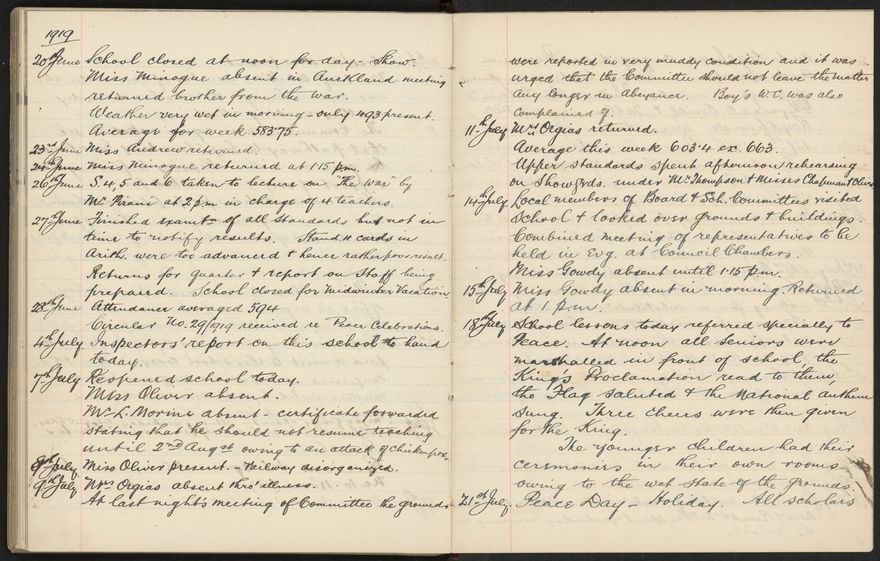 1919
20th June School closed at noon for day - Show.
Miss Minogue absent in Auckland meeting
returned brother from the war.
Weather very wet in morning - only 493 present.
Average for week 583·75.
23rd June Miss Andrew returned.
24th June Miss Minogue returned at 1·15 p.m.
26th June S. 4, 5 and 6 taken to lecture on "The War" by
Mr at 2 p.m in charge of 4 teachers.
27th June Finished examtn of all standards but not in
time to notify results. Stand. 4 cards in
Arith. were too advanced & hence rather poor result.
Returns for quarter & report on Staff being
prepared. School closed for Midwinter Vacation
28th June Attendance averaged 594
Circular No. 29/1919 received re Peace Celebrations.
4th July Inspectors' report on this school to hand
today.
7th July Reopened school today.
Miss Oliver absent.
Mr L. Morine absent - certificate forwarded
stating that he should not resume teaching
until 2nd Augst owing to an attack of Chickenpox.
8th July Miss Oliver present. - Railway disorganized.
9th July Mrs Orgias absent thro' illness.
At last night's meeting of Committee the grounds
were reported in very muddy condition and it was
urged that the Committee should not leave the matter
any longer in abeyance. Boy's W.C. was also
complained of.
11th July Mrs Orgias returned.
Average this week 603·4 ex 663.
Upper Standards spent afternoon rehearsing
on Showgrds. under Mr Thompson & Misses Chapman & Oliver
14th July Local members of Board & Sch. Committees visited
School & looked over grounds & buildings.
Combined meeting of representatives to be
held in Evg. at Council Chambers.
Miss Gowdy absent until 1·15 p.m.
15th July Miss Gowdy absent in morning. Returned
at 1 p.m.
18th July School lessons today referred specially to
Peace. At noon all Seniors were
marshalled in front of school, the
King's Proclamation read to them,
the Flag saluted & the National Anthem
sung. Three cheers were then given
for the King.
The younger children had their
ceremonies in their own rooms
owing to the wet state of the grounds.
21st July. Peace Day - Holiday. All scholars